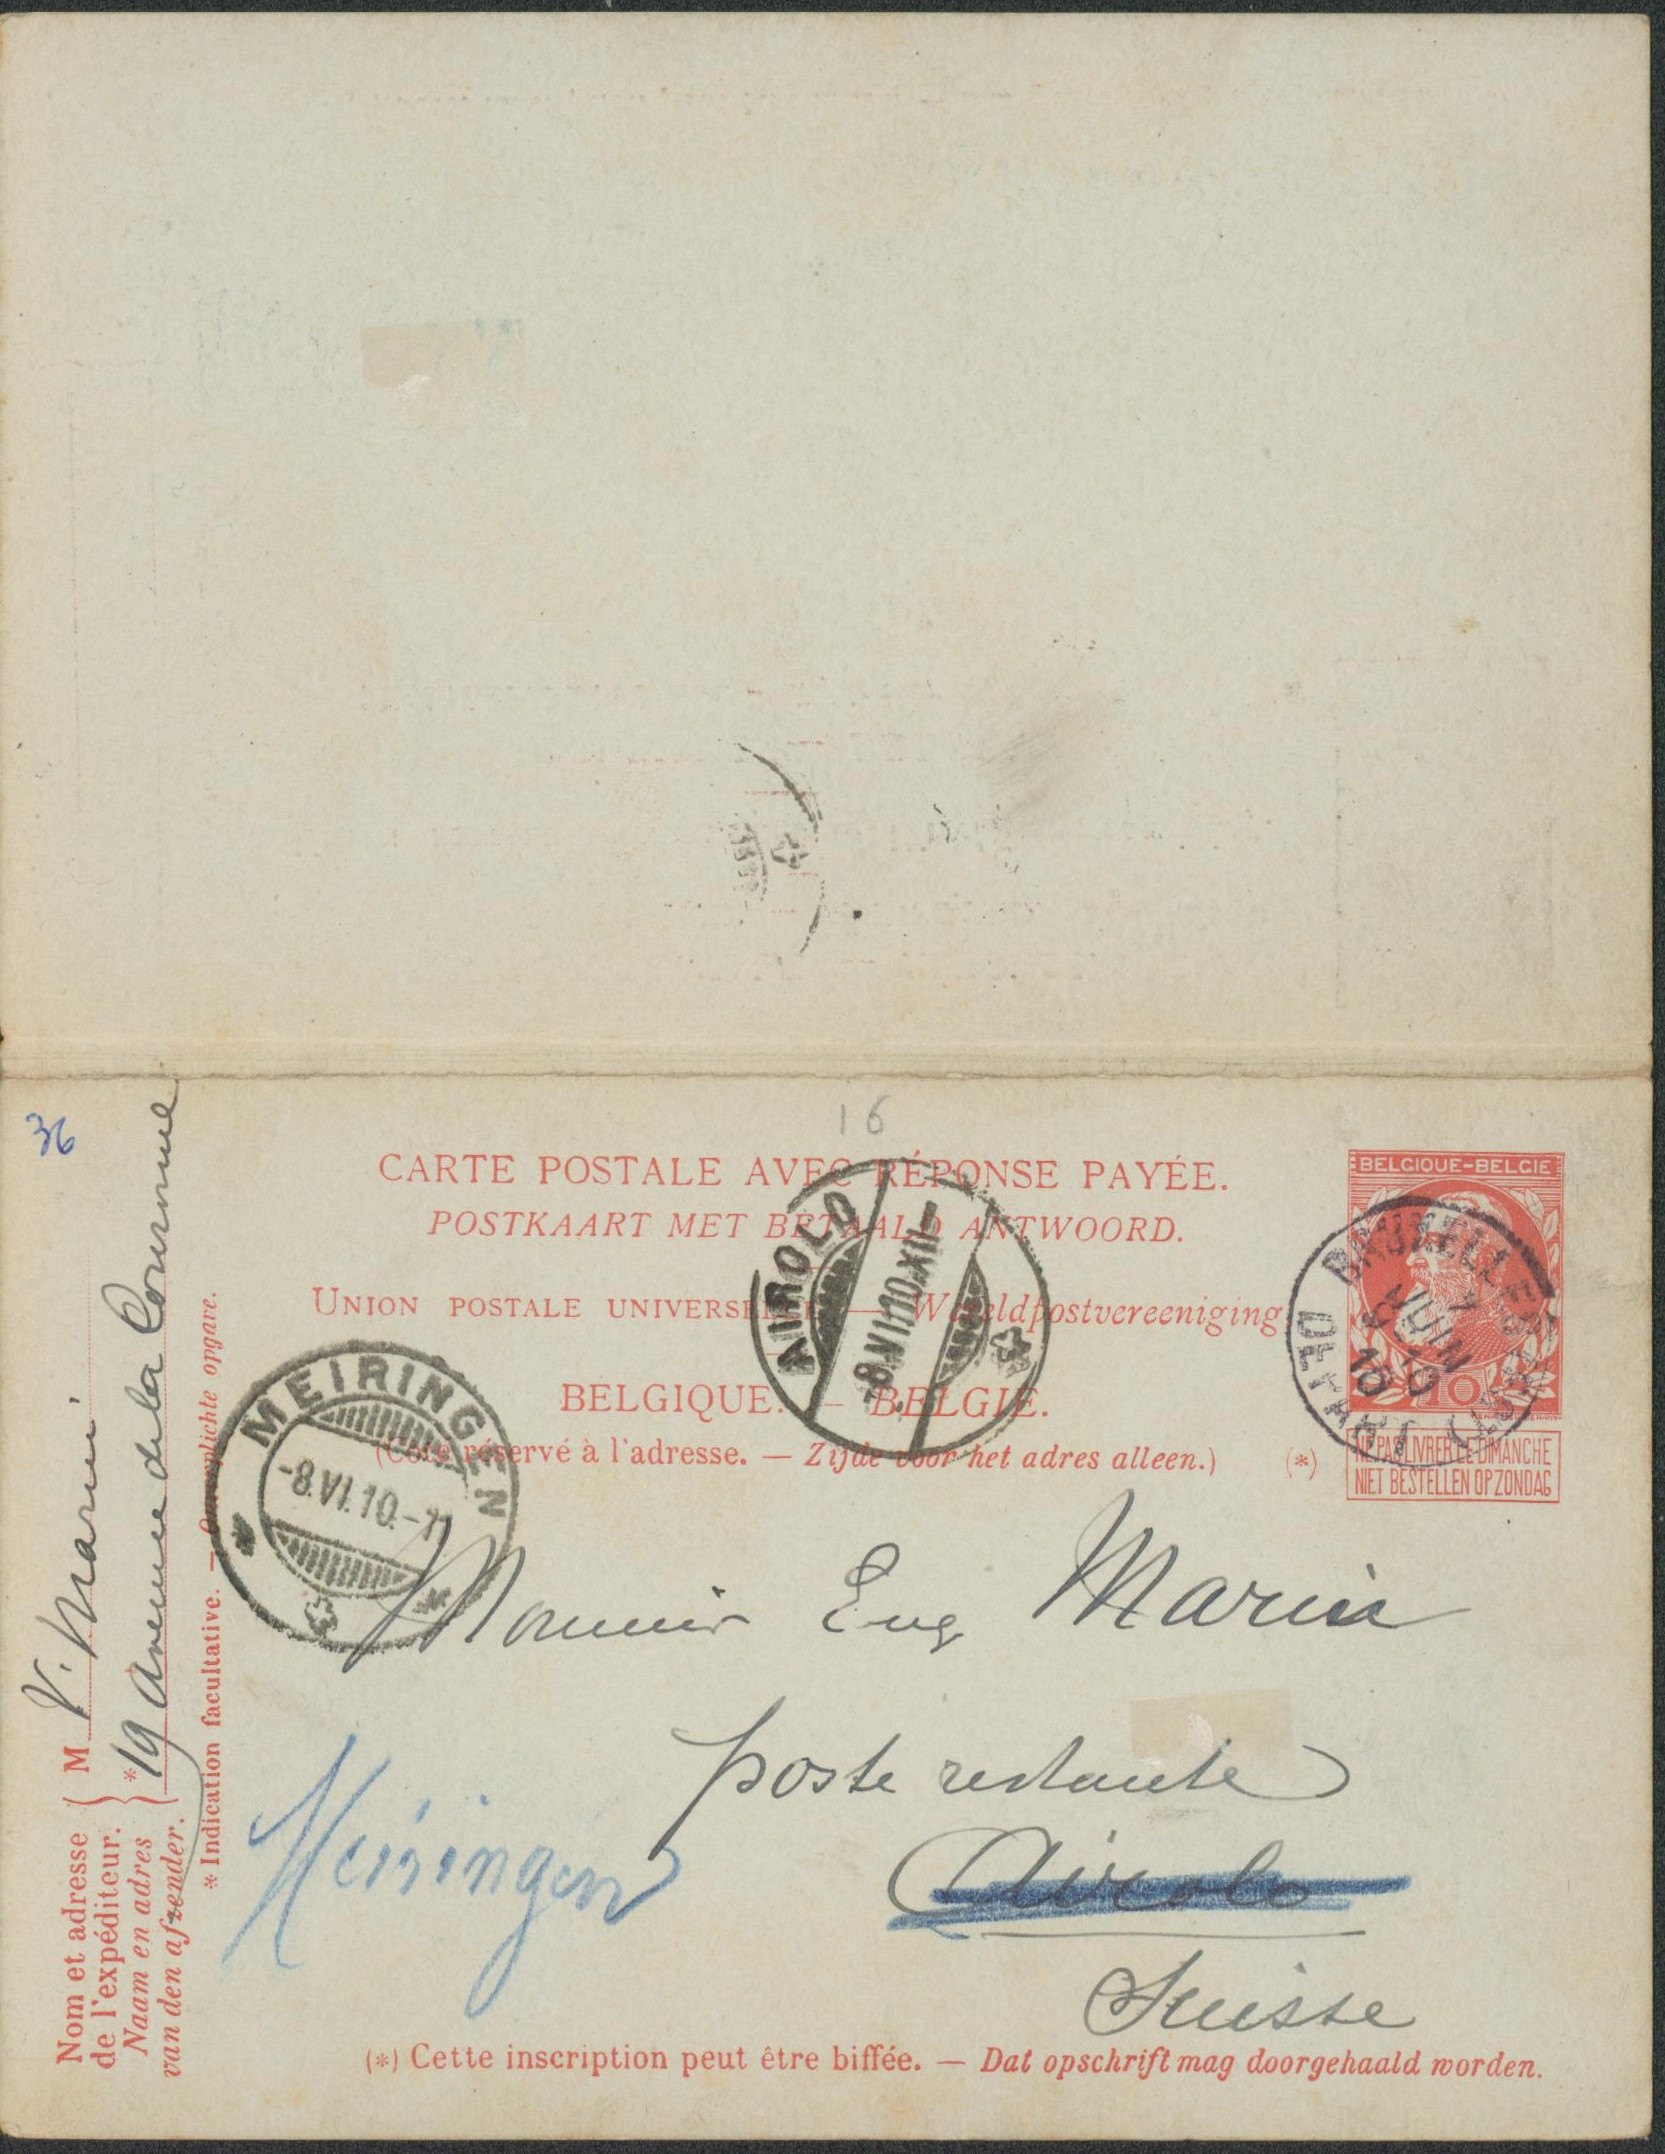 16
36
CARTE POSTALE AVEC RÉPONSE PAYÉE.
POSTKAART MET BETAALD ANTWOORD.
UNION POSTALE UNIVERSELLE — Wereldpostvereeniging
BELGIQUE. — BELGIE.
(Côté réservé à l'adresse. — Zijde voor het adres alleen.)
BELGIQUE-BELGIE
10
(*)
NE PAS LIVRER LE DIMANCHE
NIET BESTELLEN OP ZONDAG
BRUXELLES
7
JUIN
10
1910
DEPART
AIROLO
-8.VI.10.XII-
MEIRINGEN
-8.VI.10.-
Monsieur Eug Marin
poste restante
Airolo
Suisse
Meiringen
(*) Cette inscription peut être biffée. — Dat opschrift mag doorgehaald worden.
Nom et adresse
de l'expéditeur.
Naam en adres
van den afzender.
M V. Marin
* 19 avenue de la Couronne
* Indication facultative. — Onverplichte opgave.